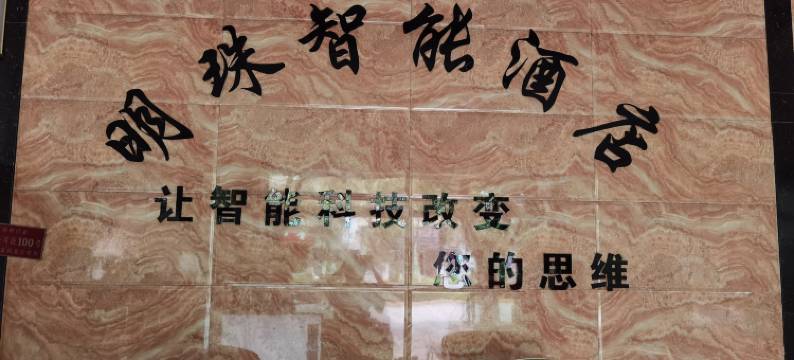 明珠智能酒店
让智能科技改变
您的思维
100